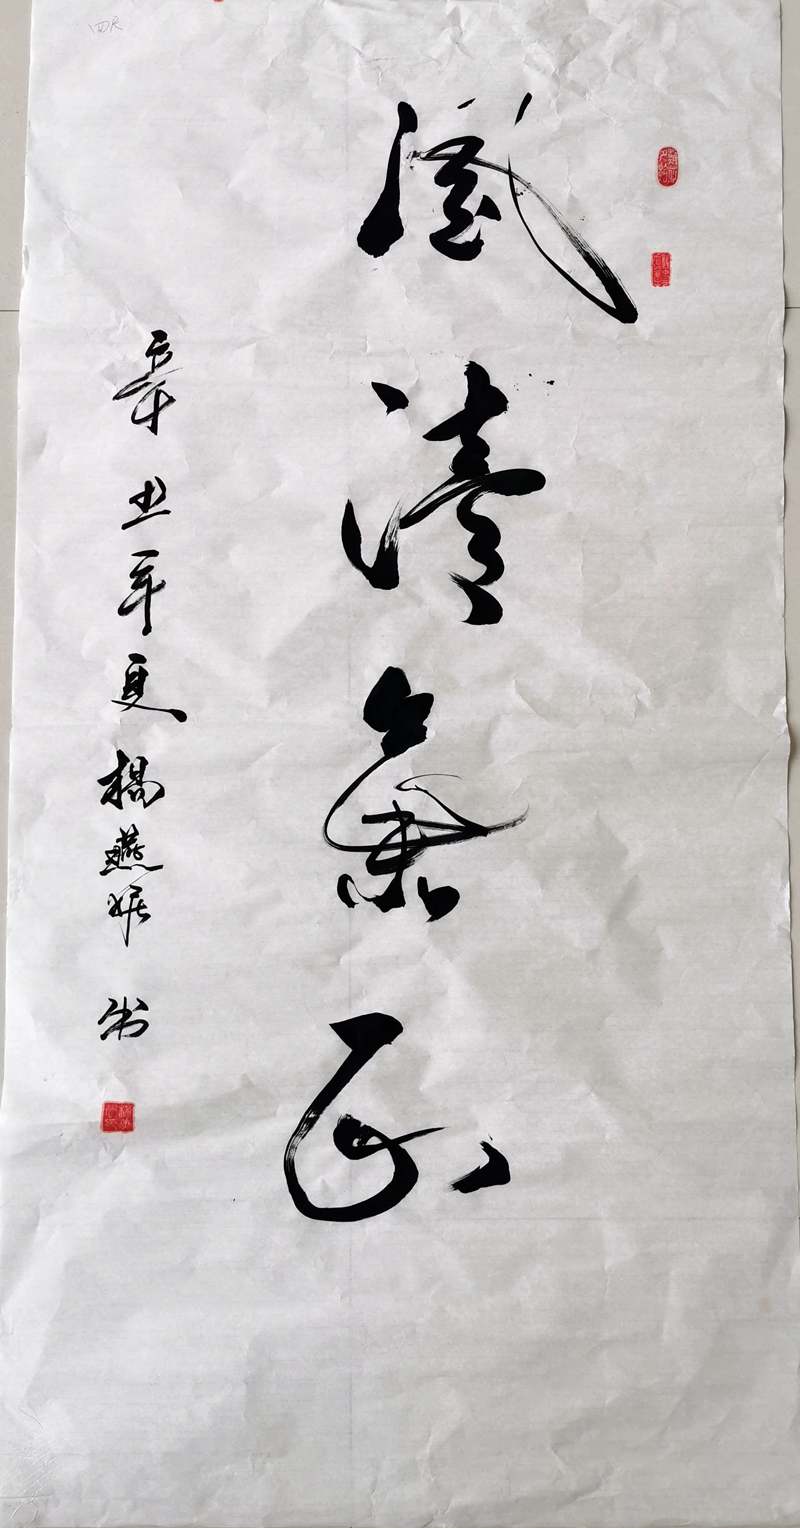 四尺
風清氣正
辛丑年夏楊燕 书